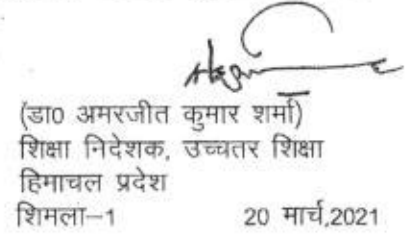 (डा० अमरजीत कुमार शर्मा)
शिक्षा निदेशक, उच्चतर शिक्षा
हिमाचल प्रदेश
शिमला-1 20 मार्च,2021